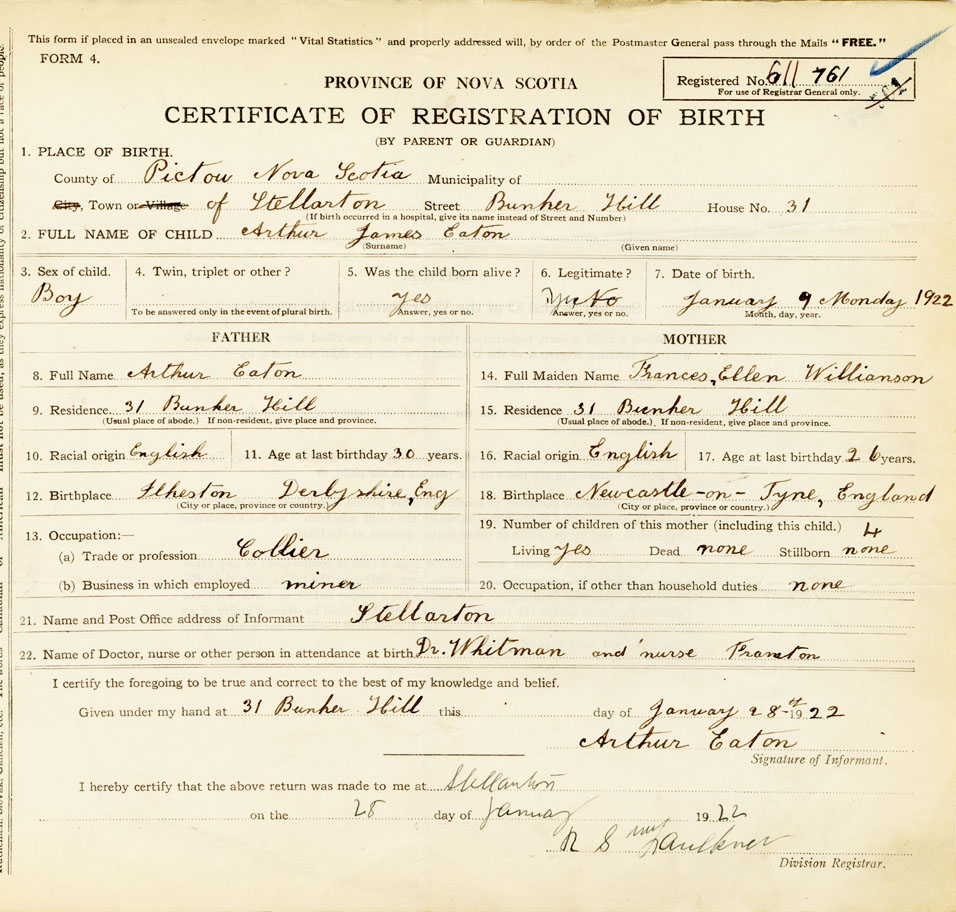 This form if placed in an unsealed envelope marked "Vital Statistics" and properly addressed will, by order of the Postmaster General pass through the Mails "FREE."
FORM 4.
Registered No. 611 761
For use of Registrar General only.
PROVINCE OF NOVA SCOTIA
CERTIFICATE OF REGISTRATION OF BIRTH
(BY PARENT OR GUARDIAN)
1. PLACE OF BIRTH.
County of Pictou Nova Scotia Municipality of
City, Town or Village of Stellarton Street Bunker Hill House No. 31
(If birth occurred in a hospital, give its name instead of Street and Number)
2. FULL NAME OF CHILD Arthur James Eaton
(Surname) (Given name)
3. Sex of child. 4. Twin, triplet or other? 5. Was the child born alive? 6. Legitimate? 7. Date of birth.
Boy yes No January 9 Monday 1922
To be answered only in the event of plural birth. Answer, yes or no. Answer, yes or no. Month, day, year.
FATHER MOTHER
8. Full Name Arthur Eaton 14. Full Maiden Name Frances, Ellen Willianson
9. Residence. 31 Bunker Hill 15. Residence 31 Bunker Hill
(Usual place of abode.) If non-resident, give place and province. (Usual place of abode.) If non-resident, give place and province.
10. Racial origin English 11. Age at last birthday 30 years. 16. Racial origin English 17. Age at last birthday 26 years.
12. Birthplace Ilheston Derbyshire, Eng 18. Birthplace Newcastle-on-Tyne, England
(City or place, province or country.) (City or place, province or country.)
13. Occupation:— 19. Number of children of this mother (including this child.) 4
(a) Trade or profession Collier Living yes Dead none Stillborn none
(b) Business in which employed miner 20. Occupation, if other than household duties none
21. Name and Post Office address of Informant Stellarton
22. Name of Doctor, nurse or other person in attendance at birth Dr. Whitman and nurse Framton
I certify the foregoing to be true and correct to the best of my knowledge and belief.
Given under my hand at 31 Bunker Hill this day of January 28th 1922
Arthur Eaton
Signature of Informant.
I hereby certify that the above return was made to me at Stellarton
on the 28 day of January 1922
R S Faulkner
Division Registrar.